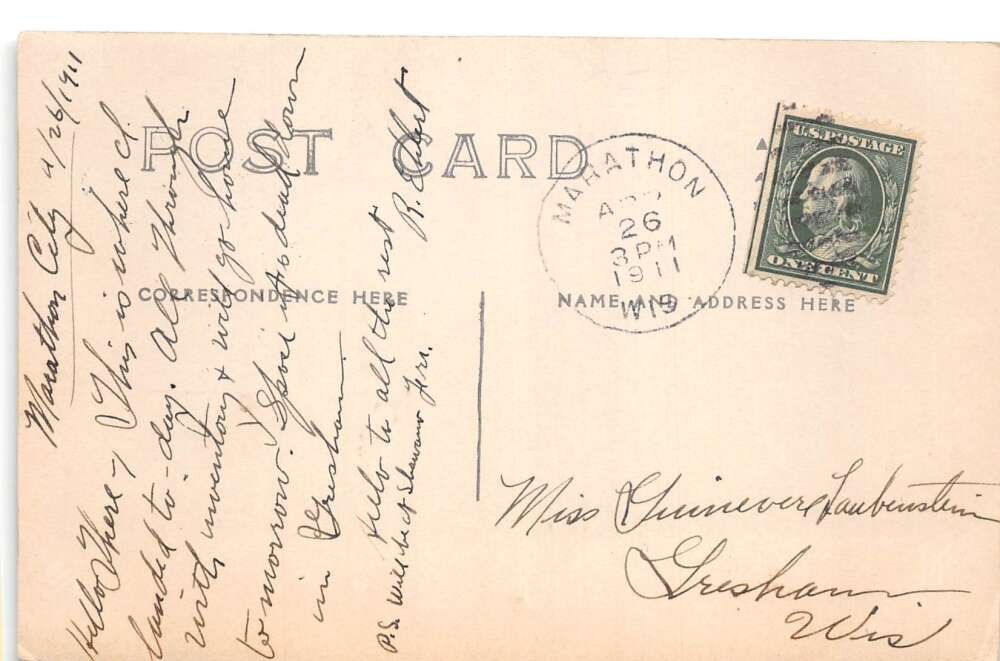 POST CARD
CORRESPONDENCE HERE
NAME AND ADDRESS HERE
U.S. POSTAGE
ONE CENT
MARATHON
APR
26
3 PM
1911
WIS
Marathon City 4/26/1911
Hello There, This is where I
landed to-day. All through
with inventory & will go home
to morrow. is dead down
in Gresham.
Hello to all the rest
R.
P.S. will be at Shawano Fri.
Miss Guinevere Laubenstein
Gresham
Wis